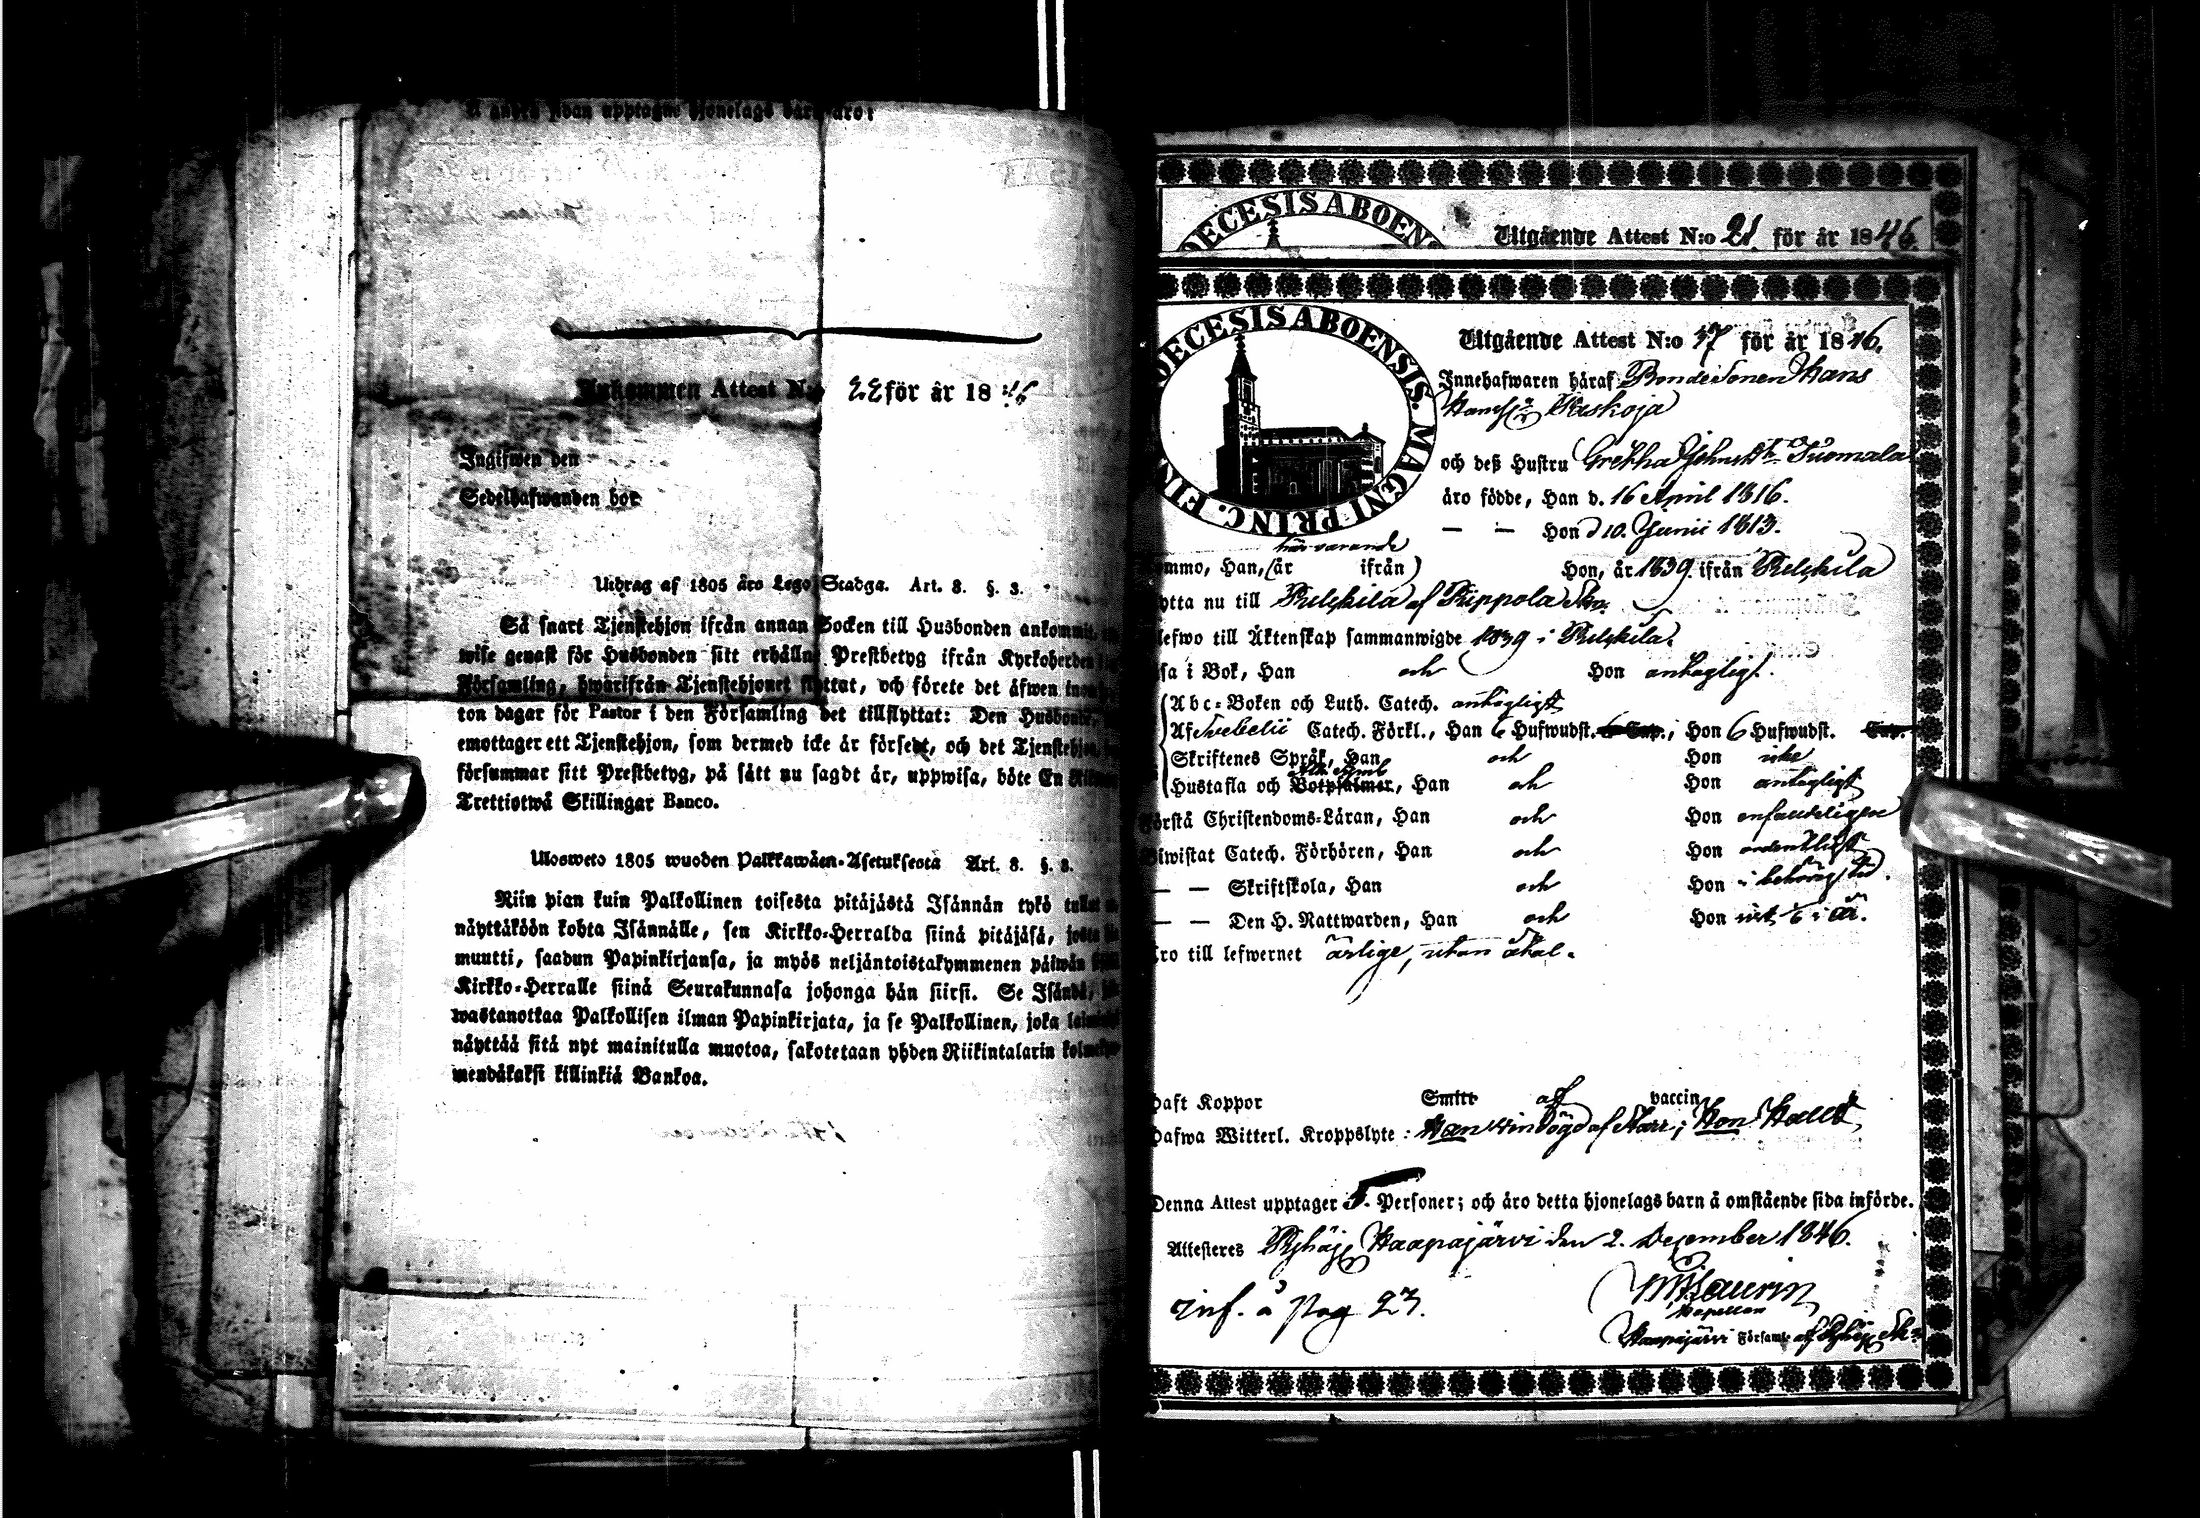 å andra sidan upptagne hjonelags barn äro:
Ankommen Attest N:o 22 för år 1846
Ingifwen den
Sedelhafwanden bor
Utdrag af 1805 års Lego Stadga. Art. 8. §. 3.
Så snart Tjenstehjon ifrån annan Socken till Husbonden ankommit,
wise genast för Husbonden sitt erhållna Prestbetyg ifrån Kyrkoherden i
Församling, hwarifrån Tjenstehjonet flyttat, och förete det äfwen inom
ton dagar för Pastor i den Församling det tillflyttat: Den Husbonde,
emottager ett Tjenstehjon, som dermed icke är försedt, och det Tjenstehjon,
försummar sitt Prestbetyg, på sätt nu sagdt är, uppwisa, böte En
Trettiotwå Skillingar Banco.
Ulosweto 1805 wuoden Palkkawäen-Asetuksesta Art. 8. §. 3.
Niin pian kuin Palkollinen toisesta pitäjästä Isännän tykö tullut
näyttäköön kohta Isännälle, sen Kirkko-Herralda siinä pitäjäsä, josta
muutti, saadun Papinkirjansa, ja myös neljäntoistakymmenen päiwän
Kirkko-Herralle siinä Seurakunnasa johonga hän siirsi. Se Isändä,
wastanottaa Palkollisen ilman Papinkirjata, ja se Palkollinen, joka
näyttää sitä nyt mainitulla muotoa, sakotetaan yhden Riikintalarin
mendäkaksi killinkiä Bankoa.
DECESIS ABOENS
Utgående Attest N:o 21. för år 1846
DECESIS ABOENSIS. MAGNI PRINC. FIN
Utgående Attest N:o 17 för år 1846.
Innehafwaren häraf Bondesonen Hans
Hanss: Kaskoja
och deß Hustru Gretha Johansdtr Tuomala
äro födde, Han d. 16 April 1816.
— — Hon d 10. Junii 1813.
härvarande
ommo, Han, (år ifrån) Hon, år 1839 ifrån Pelkila
ytta nu till Pelkila af Kippola Skn.
lefwo till Äktenskap sammanwigde 1839 i Pelkila.
sa i Bok, Han och Hon antagligt.
Abc-Boken och Luth. Catech. antagligt
Af Svebelii Catech. Förkl., Han 6 Hufwudst. Cap.; Hon 6 Hufwudst. Cap.
Skriftenes Språk, Han och Hon icke
Hustafla och Botpsalmer, Han och Hon antagligt
Förstå Christendoms-Läran, Han och Hon enfaldeligen
Biwistat Catech. Förhören, Han och Hon ordentligt
— — Skriftskola, Han och Hon i behörig tid.
— — Den H. Nattwarden, Han och Hon
äro till lefwernet ärlige, utan åtal.
haft Koppor Smitt af vaccin
hafwa Witterl. Kroppslyte: Han af Starr; Hon Halt
Denna Attest upptager 5. Personer; och äro detta hjonelags barn å omstående sida införde.
Attesteres Haapajärvi den 2. December 1846.
inf. å Pag 23.
Kapellan
Haapajärvi Församl. af